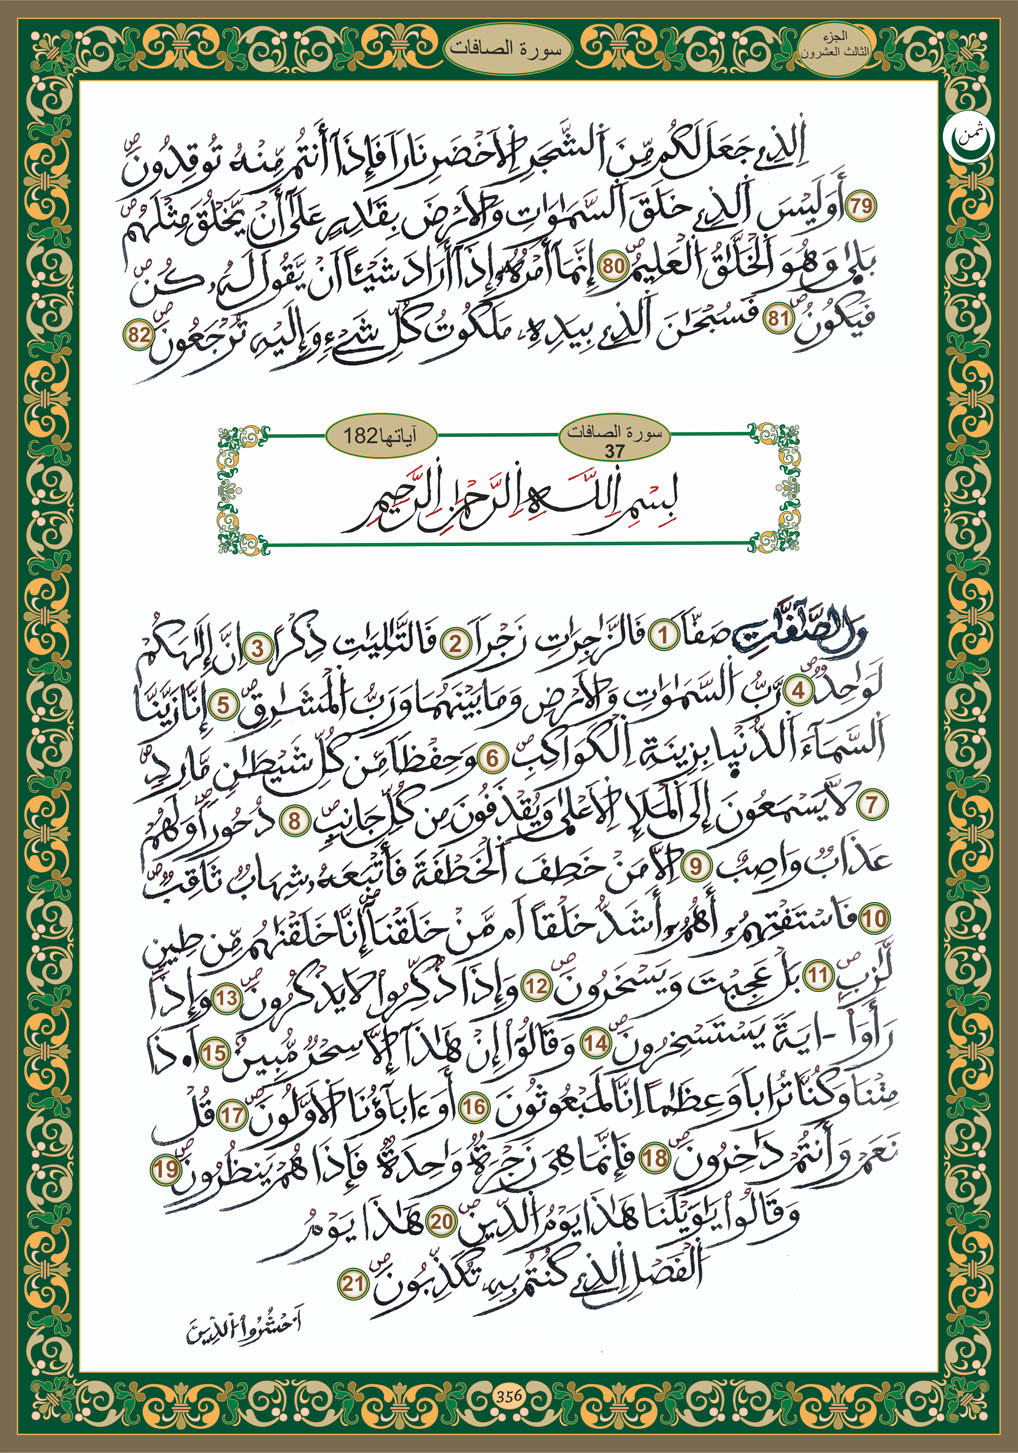 سورة الصافات
الجزء
الثالث العشرون
ثمن
اَ۬لذِے جَعَلَ لَكُم مِّنَ اَ۬لشَّجَرِ اِ۬لَاخْضَرِ نَاراٗ فَإِذَآ أَنتُم مِّنْهُ تُوقِدُونَۖ
79 أَوَلَيْسَ اَ۬لذِے خَلَقَ اَ۬لسَّمَٰوَٰتِ وَالَارْضَ بِقَٰدِرٍ عَلَيٰٓ أَنْ يَّخْلُقَ مِثْلَهُمۖ
بَلَيٰ وَهُوَ اَ۬لْخَلَّٰقُ اُ۬لْعَلِيمُۖ 80 إِنَّمَآ أَمْرُهُۥٓ إِذَآ أَرَادَ شَيْـٔاً اَنْ يَّقُولَ لَهُۥ كُنۖ
فَيَكُونُۖ 81 فَسُبْحَٰنَ اَ۬لذِے بِيَدِهِۦ مَلَكُوتُ كُلِّ شَےْءٖ وَإِلَيْهِ تُرْجَعُونَۖ 82
سورة الصافات
37
آياتها182
بِسْمِ اِ۬للَّهِ اِ۬لرَّحْمَٰنِ اِ۬لرَّحِيمِ
وَالصَّٰٓفَّٰتِ صَفّاٗ 1 فَالزَّٰجِرَٰتِ زَجْراٗ 2 فَالتَّٰلِيَٰتِ ذِكْراً 3 اِنَّ إِلَٰهَكُمْ
لَوَٰحِدٞۖ 4 رَّبُّ اُ۬لسَّمَٰوَٰتِ وَالَارْضِ وَمَا بَيْنَهُمَا وَرَبُّ اُ۬لْمَشَٰرِقِۖ 5 إِنَّا زَيَّنَّا
اَ۬لسَّمَآءَ اَ۬لدُّنْي۪ا بِزِينَةِ اِ۬لْكَوَاكِبِۖ 6 وَحِفْظاٗ مِّن كُلِّ شَيْطَٰنٖ مَّارِدٖۖ
7 لَّا يَسْمَعُونَ إِلَي اَ۬لْمَلَإِ اِ۬لَاعْلَيٰ وَيُقْذَفُونَ مِن كُلِّ جَانِبٖۖ 8 دُحُوراٗۖ وَلَهُمْ
عَذَابٞ وَاصِبٌ 9 اِلَّا مَنْ خَطِفَ اَ۬لْخَطْفَةَ فَأَتْبَعَهُۥ شِهَابٞ ثَاقِبٞۖ
10 فَاسْتَفْتِهِمُۥٓ أَهُمُۥٓ أَشَدُّ خَلْقاً اَم مَّنْ خَلَقْنَآ إِنَّا خَلَقْنَٰهُم مِّن طِينٖ
لَّازِبٖۖ 11 بَلْ عَجِبْتَ وَيَسْخَرُونَۖ 12 وَإِذَا ذُكِّرُواْ لَا يَذْكُرُونَۖ 13 وَإِذَا
رَأَوَاْ ـايَةٗ يَسْتَسْخِرُونَۖ 14 وَقَالُوٓاْ إِنْ هَٰذَآ إِلَّا سِحْرٞ مُّبِينٌۖ 15 اَ۟ذَا
مِتْنَا وَكُنَّا تُرَاباٗ وَعِظَٰماً اِنَّا لَمَبْعُوثُونَ 16 أَوَءَابَآؤُنَا اَ۬لَاوَّلُونَۖ 17 قُلْ
نَعَمْ وَأَنتُمْ دَٰخِرُونَۖ 18 فَإِنَّمَا هِيَ زَجْرَةٞ وَٰحِدَةٞ فَإِذَا هُمْ يَنظُرُونَۖ 19
وَقَالُواْ يَٰوَيْلَنَا هَٰذَا يَوْمُ اُ۬لدِّينِۖ 20 هَٰذَا يَوْمُ
اُ۬لْفَصْلِ اِ۬لذِے كُنتُم بِهِۦ تُكَذِّبُونَۖ 21
اَ۟حْشُرُواْ اُ۬لذِينَ
356